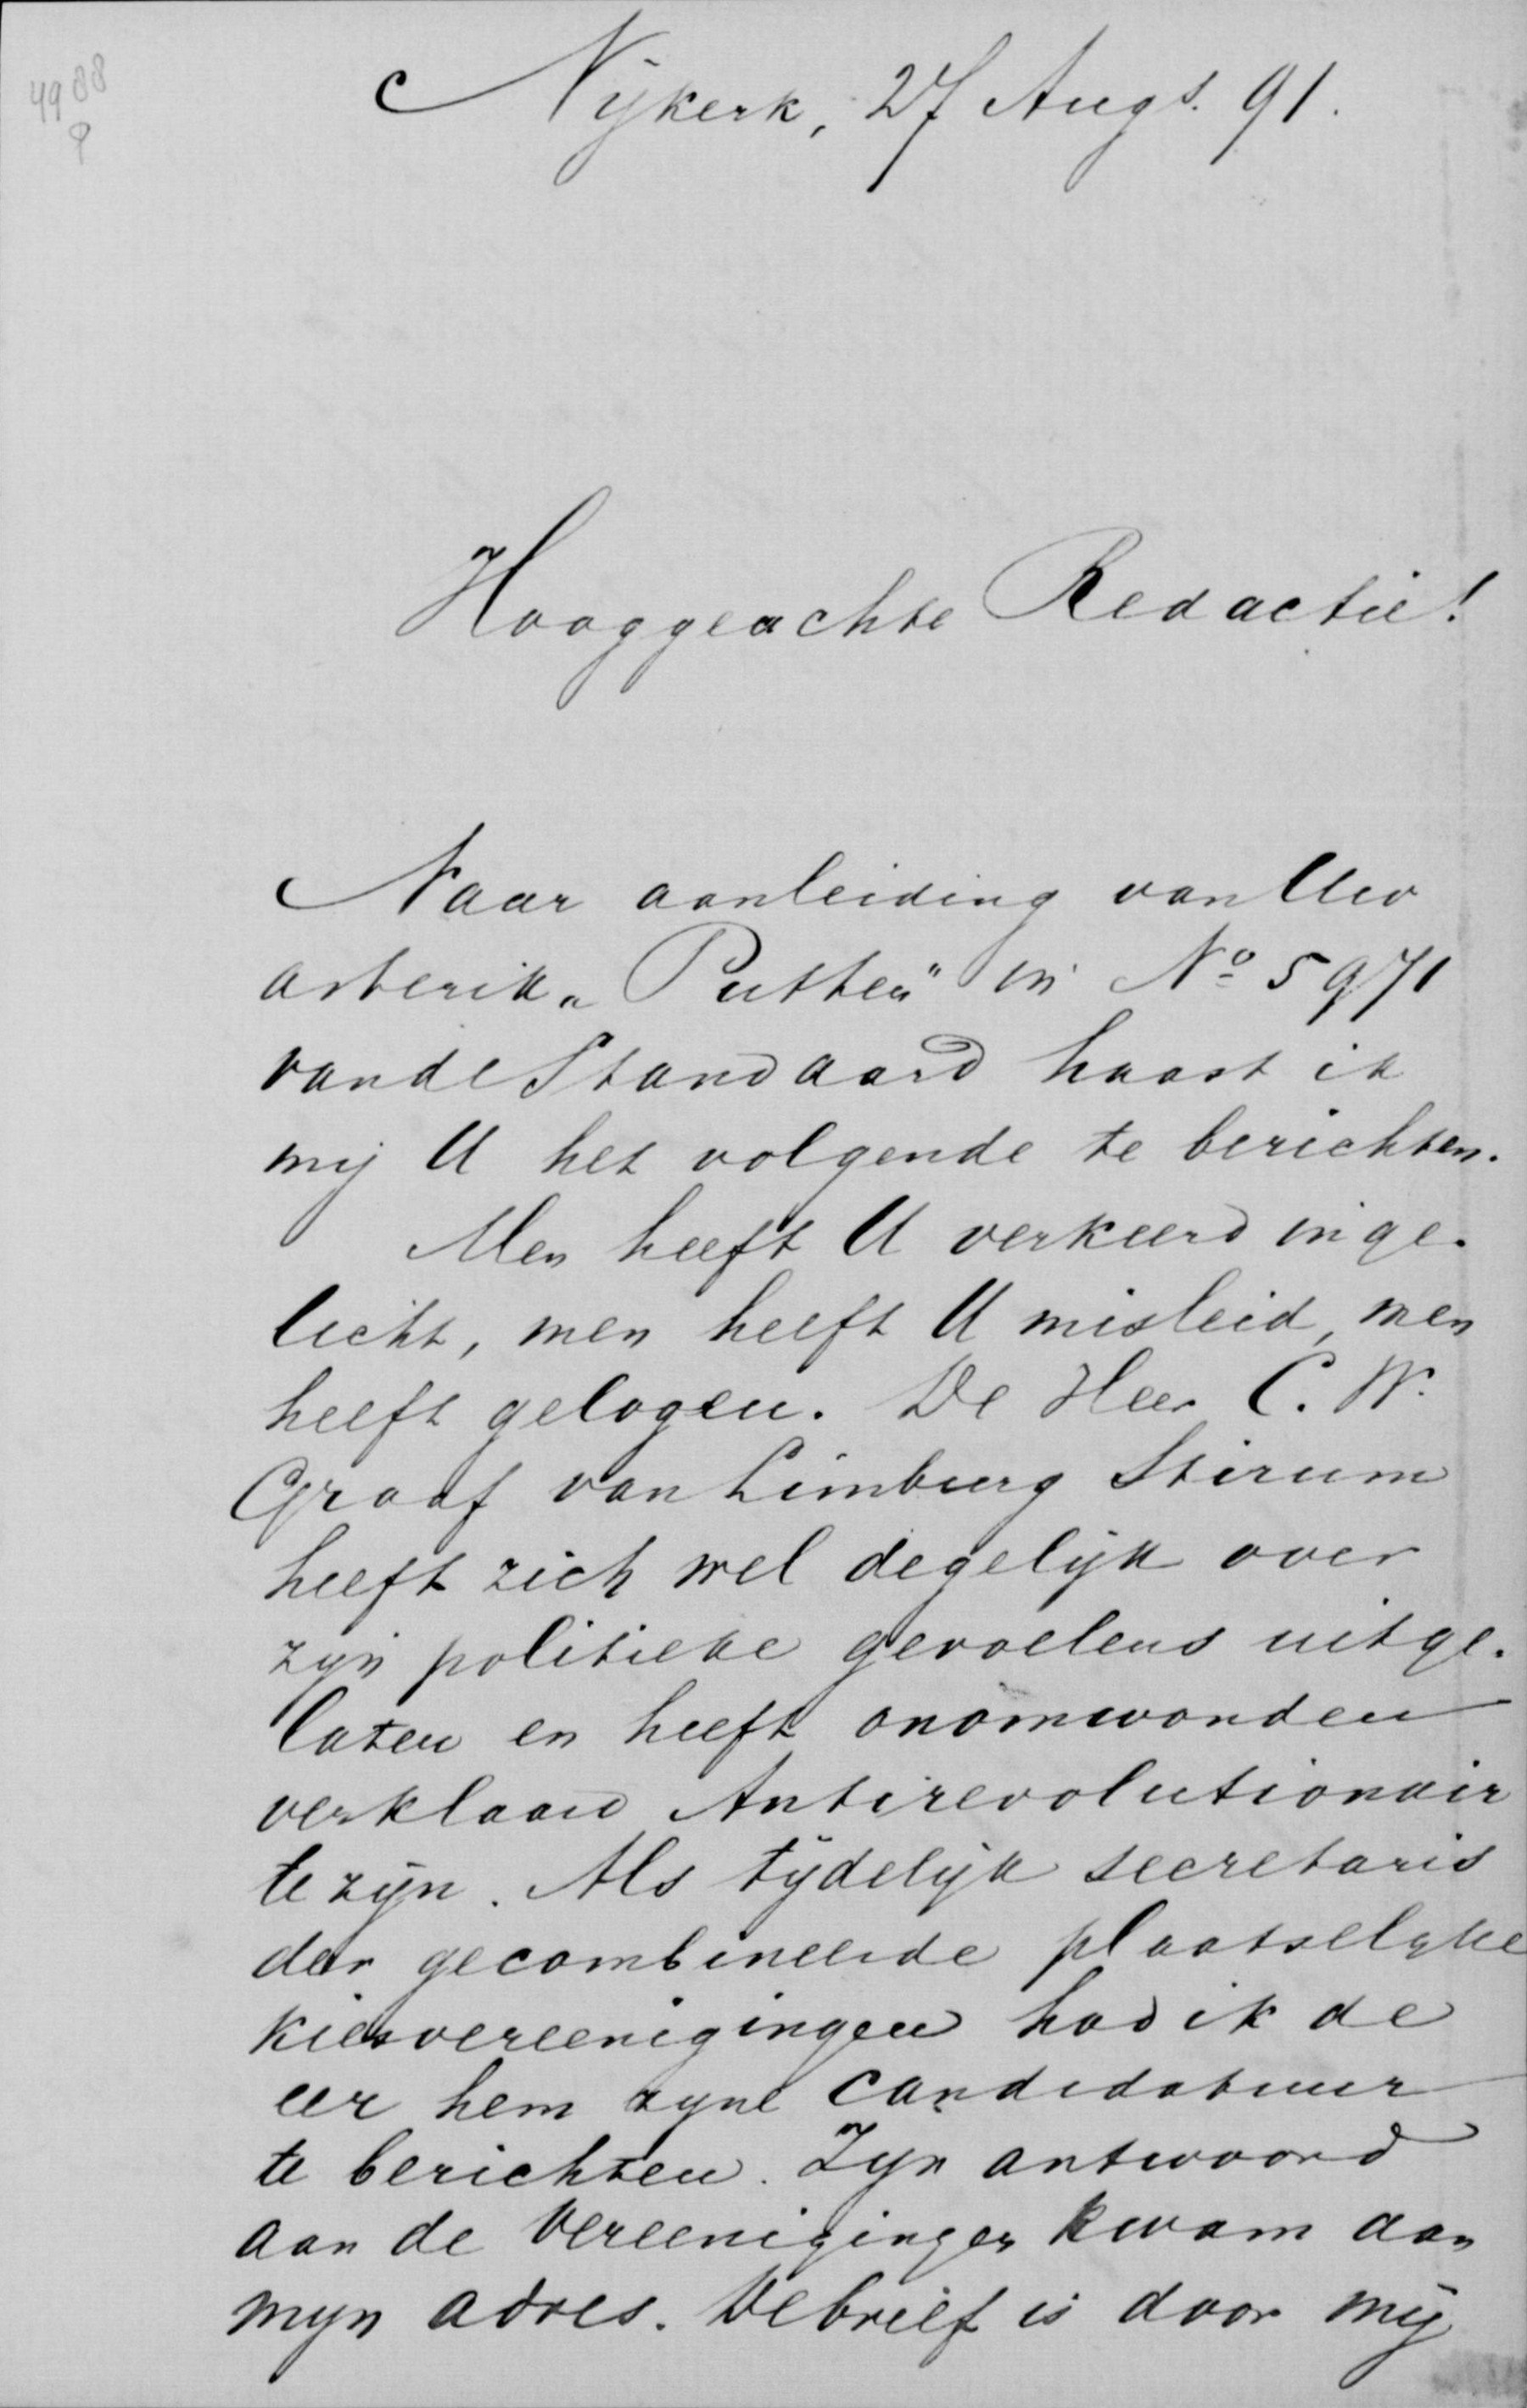 4988
9
Nijkerk, 27 Augs. 91.
Hooggeachte Redactie!
Naar aanleiding van Uw
asterik „Putten" in No 5971
van de Standaard haast ik
mij U het volgende te berichten.
Men heeft U verkeerd inge-
licht, men heeft U misleid, men
heeft gelogen. De Heer C. W.
Graaf van Limburg Stirum
heeft zich wel degelijk over
zyn politieke gevoelens uitge-
laten en heeft onomwonden
verklaard Antirevolutionair
te zijn. Als tijdelijk secretaris
der gecombineerde plaatselyke
kiesvereenigingen had ik de
eer hem zyne candidatuur
te berichten. Zyn antwoord
aan de Vereenigingen kwam aan
myn adres. De brief is door mij